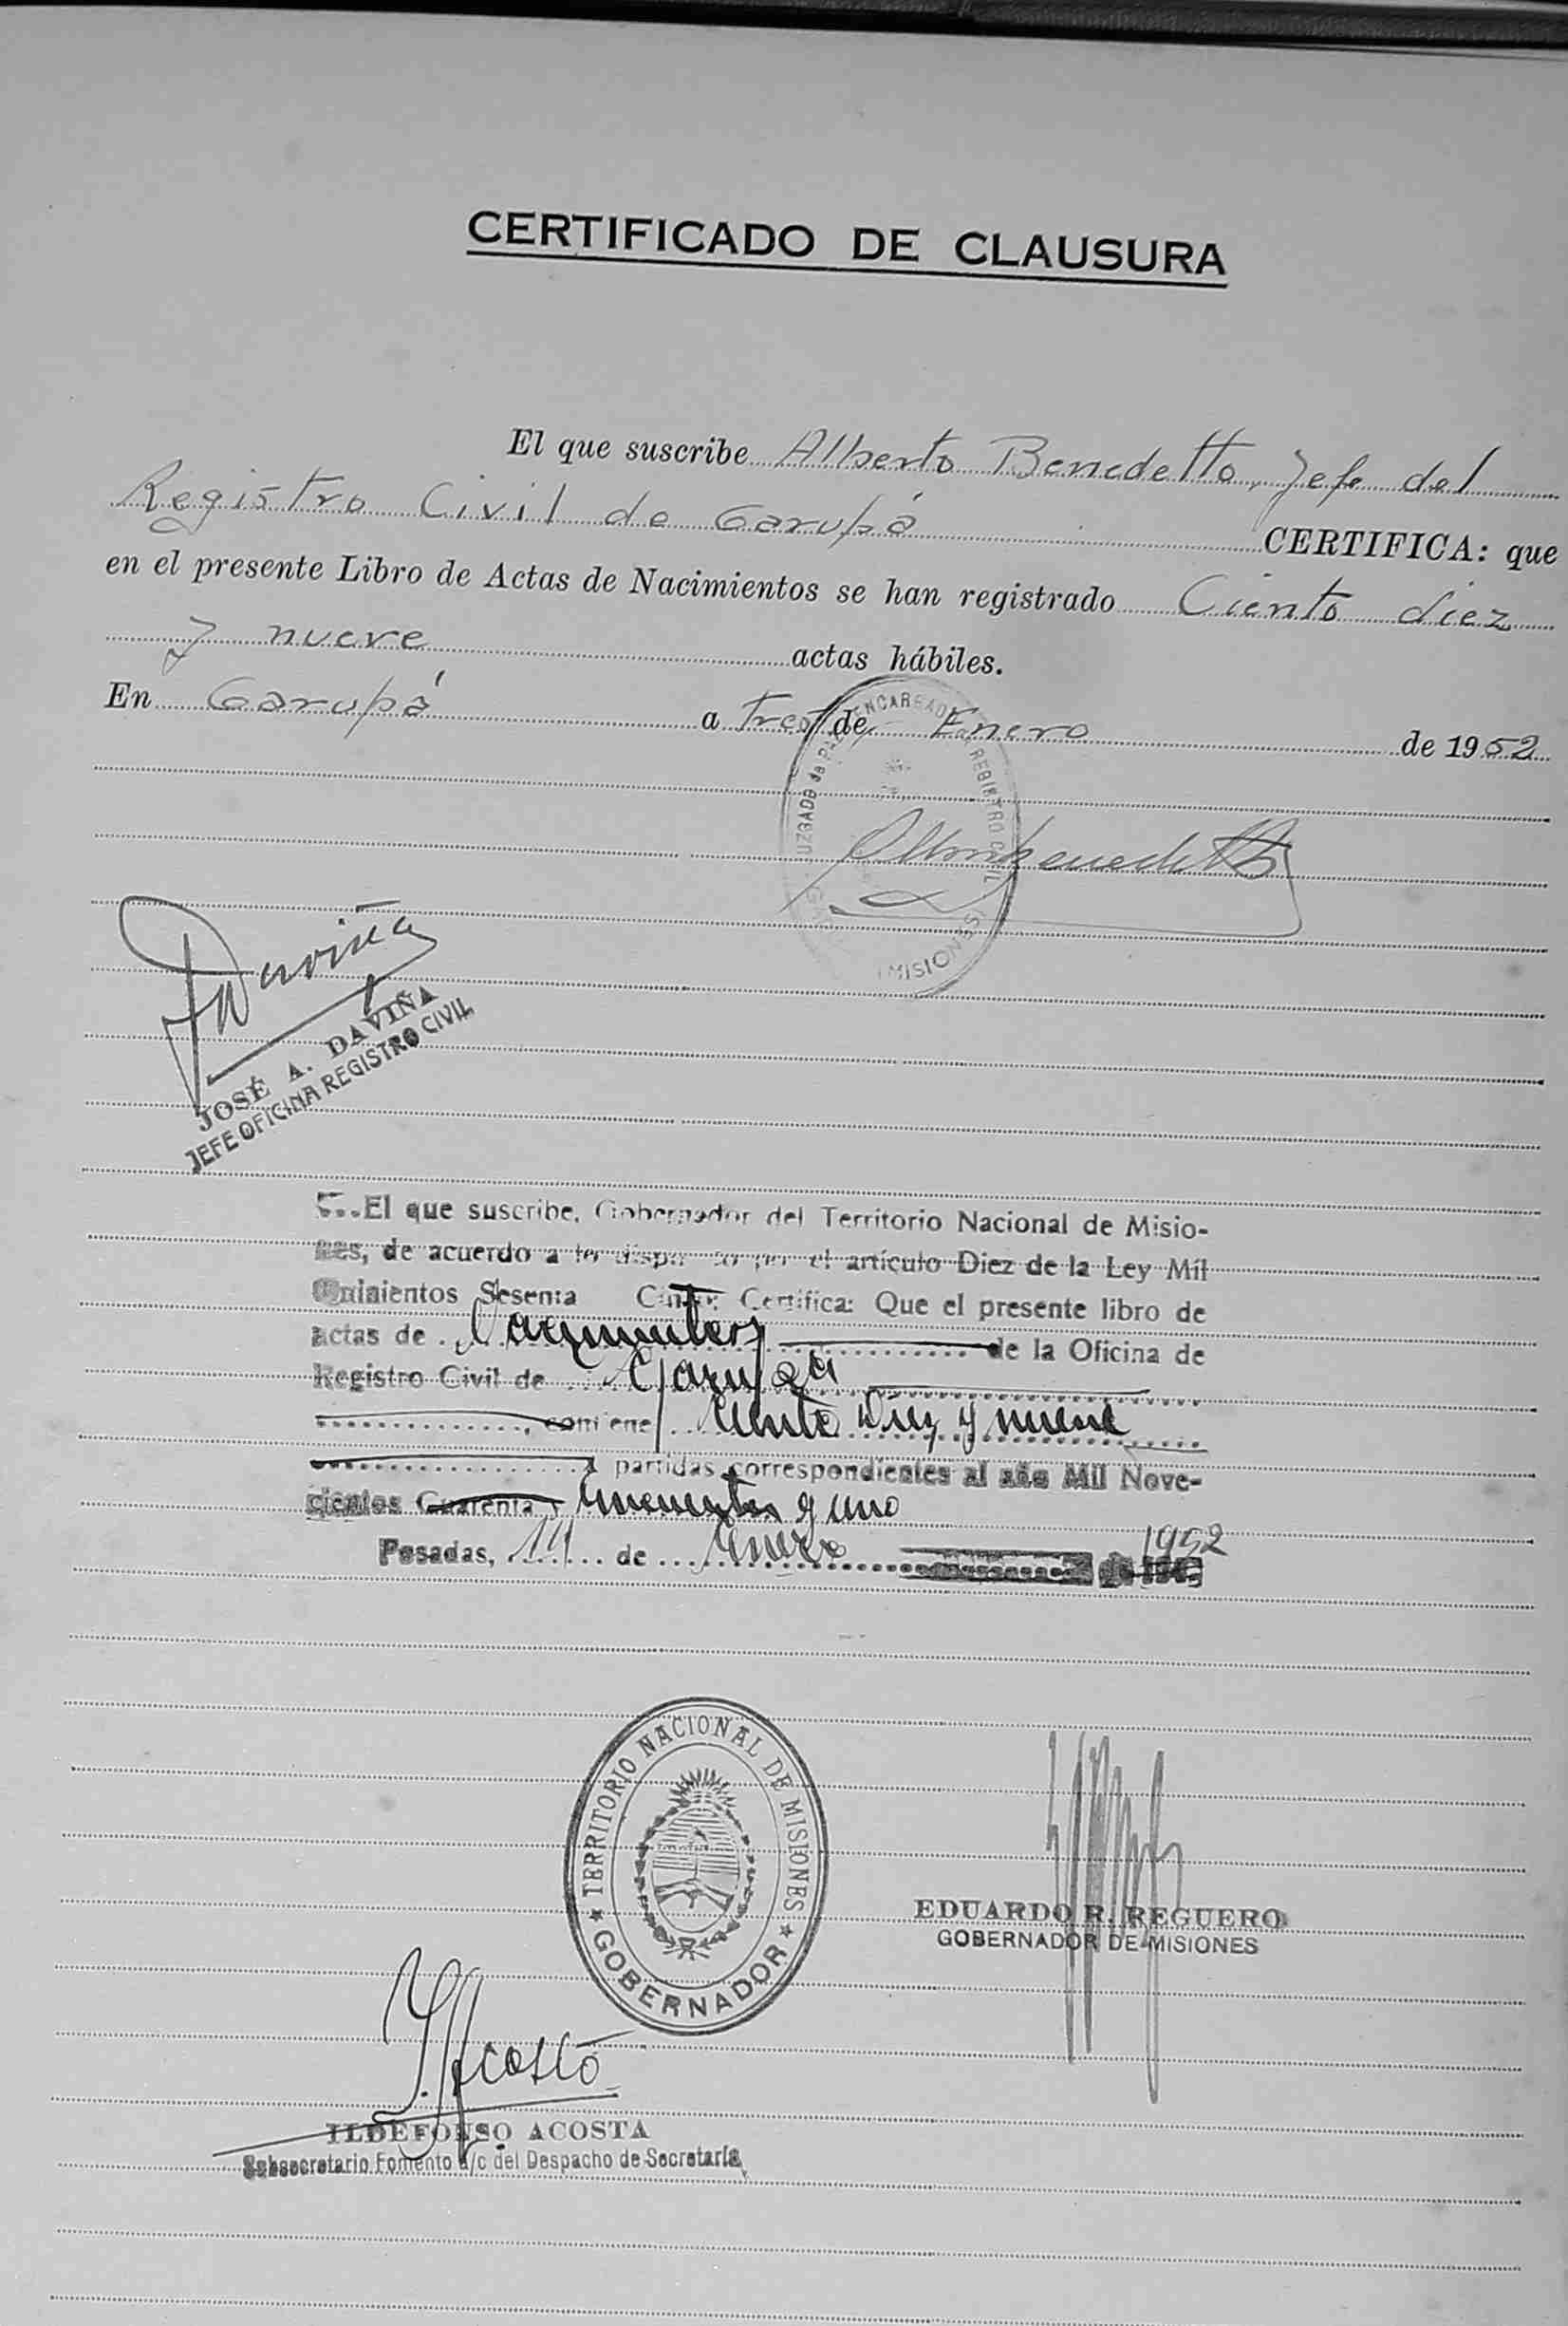 CERTIFICADO DE CLAUSURA
El que suscribe Alberto Benedetto, Jefe del
Registro Civil de Garupá CERTIFICA: que
en el presente Libro de Actas de Nacimientos se han registrado Ciento diez
y nueve actas hábiles.
En Garupá a tres de Enero de 1952
JUZGADO de PAZ ENCARGADO REGISTRO CIVIL
(MISIONES)
Daviña
JOSÉ A. DAVIÑA
JEFE OFICINA REGISTRO CIVIL
El que suscribe, Gobernador del Territorio Nacional de Misio-
nes, de acuerdo a lo dispuesto por el artículo Diez de la Ley Mil
Quinientos Sesenta Cinco, Certifica: Que el presente libro de
actas de Nacimientos de la Oficina de
Registro Civil de Garupá
, contiene Ciento Diez y nueve
partidas correspondientes al año Mil Nove-
cientos Cuarenta y Cincuenta y uno
Posadas, 14 de Enero 1952
TERRITORIO NACIONAL DE MISIONES
GOBERNADOR
EDUARDO R. REGUERO
GOBERNADOR DE MISIONES
I. Acosta
ILDEFONSO ACOSTA
Subsecretario Fomento a/c del Despacho de Secretaría